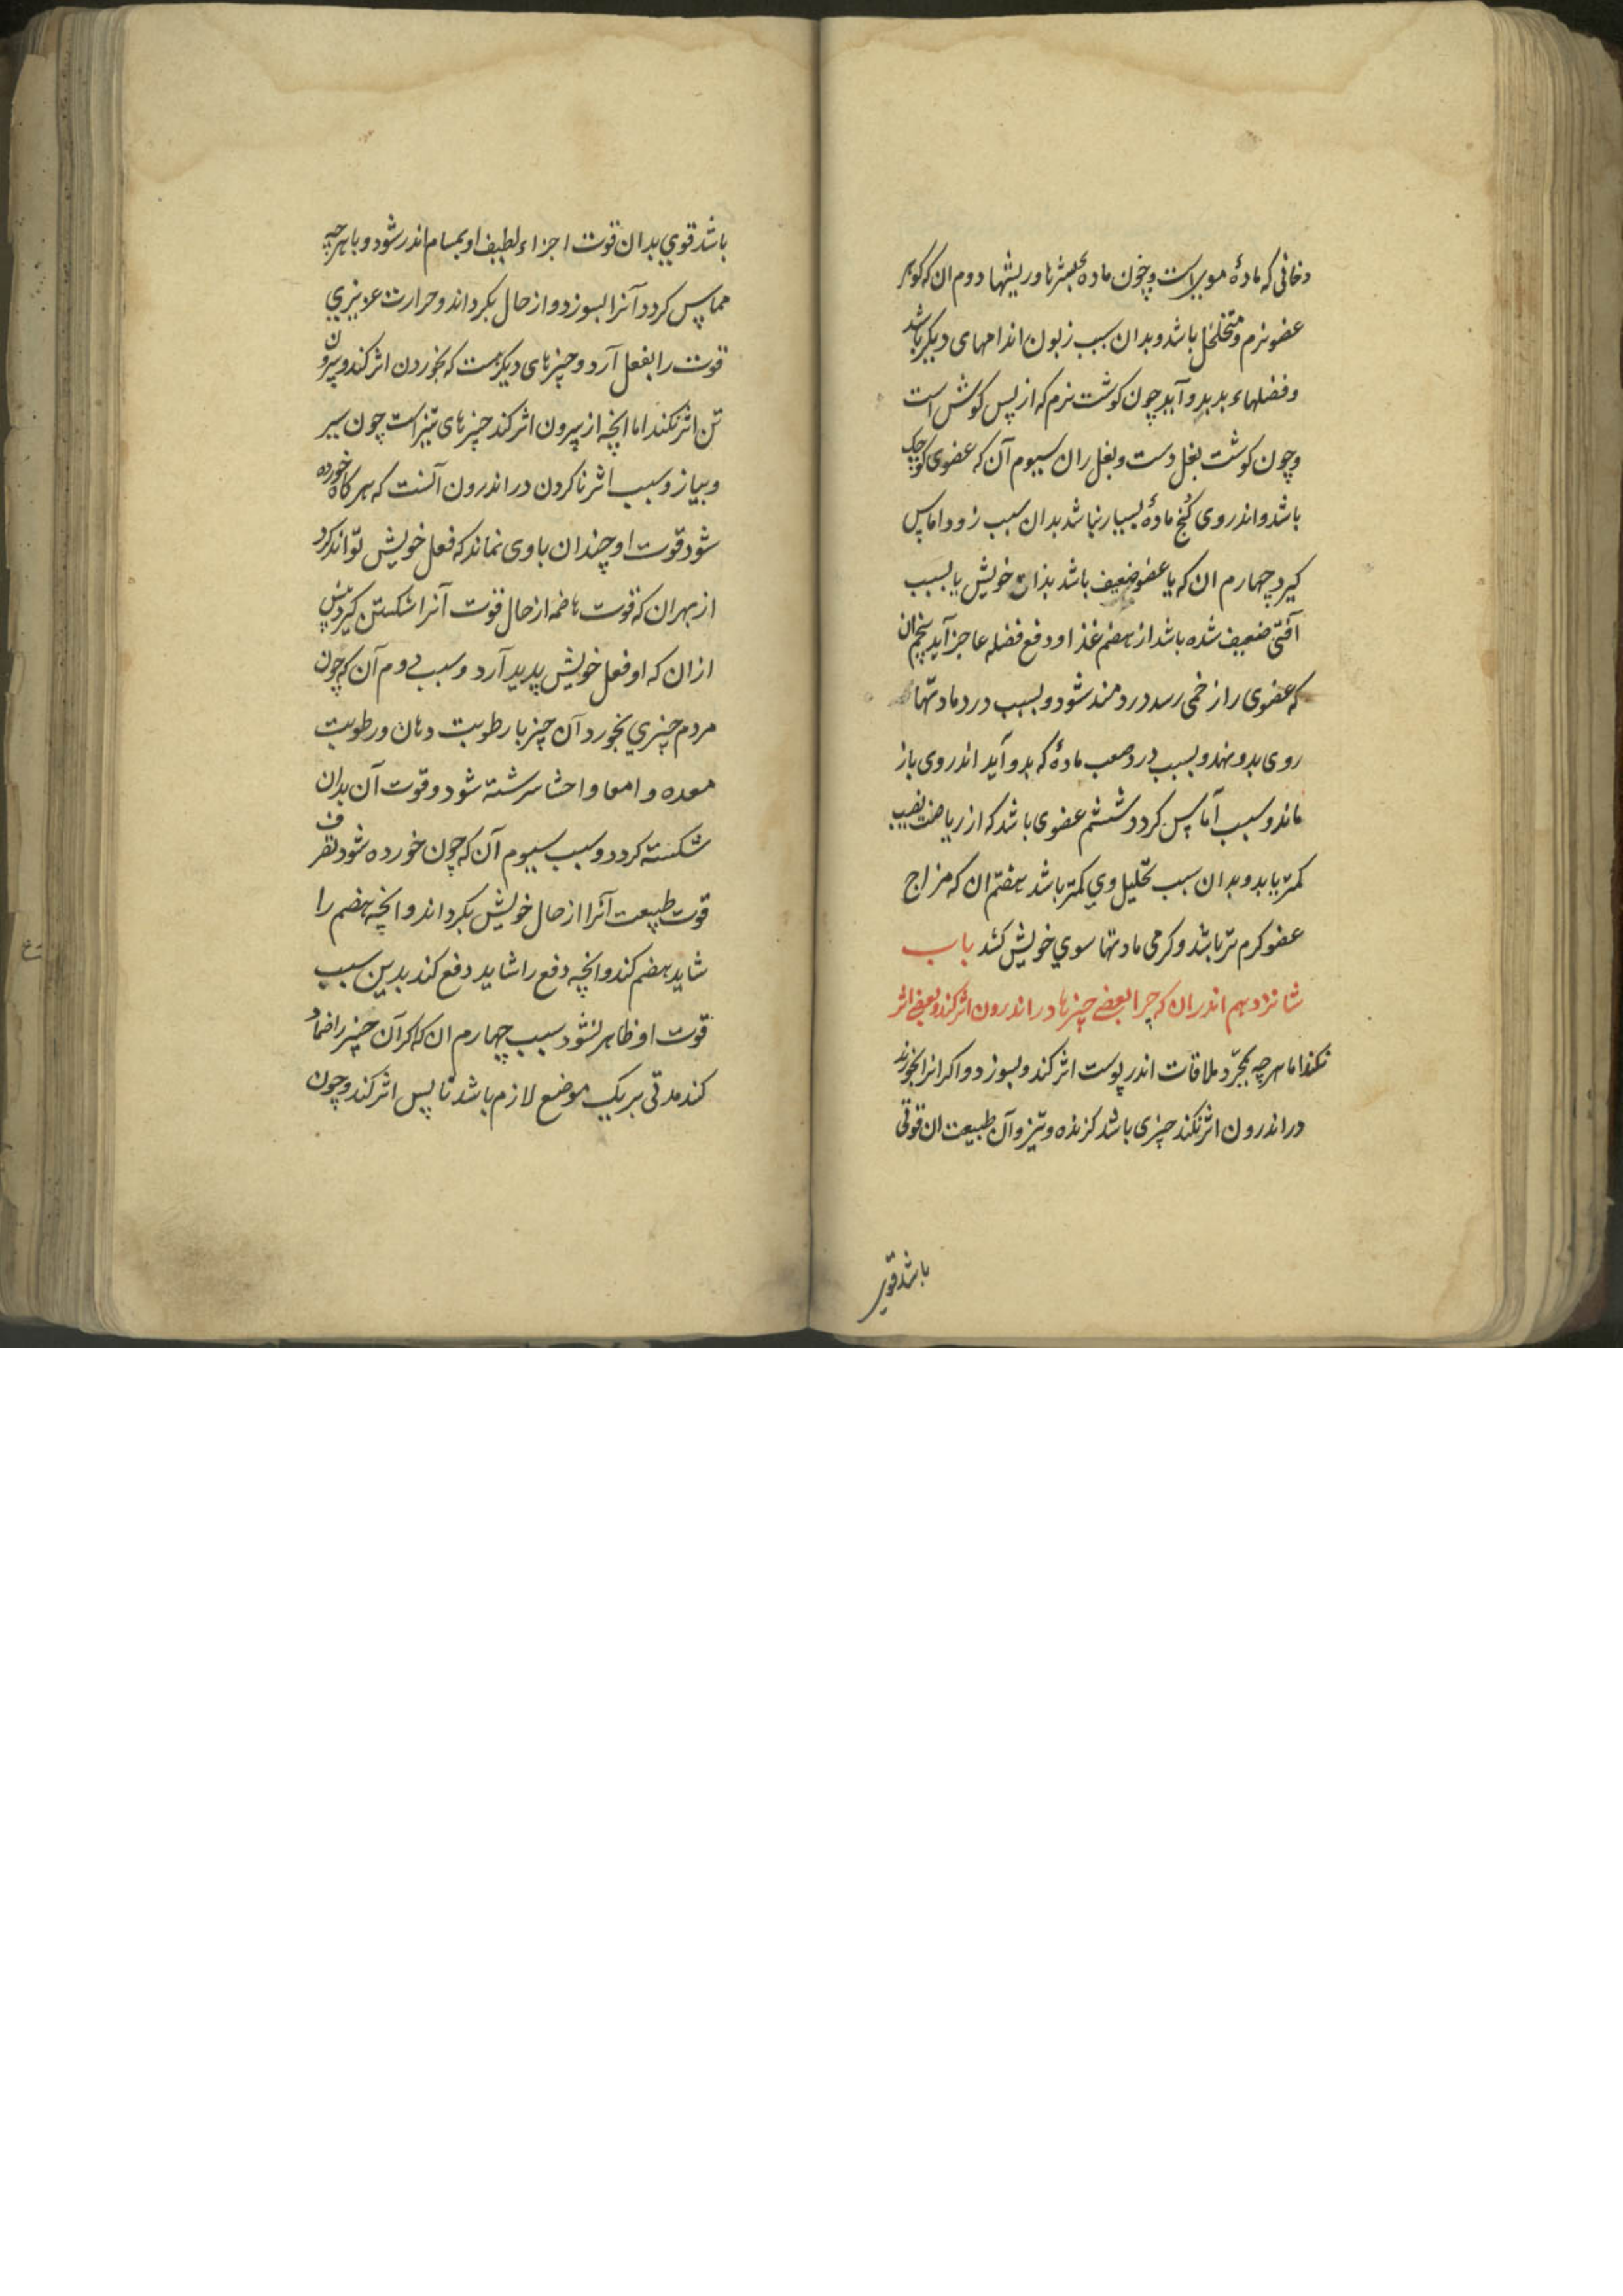 دخانی که مادهٔ موی است و چون ماده بثرها و ریشها دوم ان که کوهر
عضو نرم و متخلخل باشد و بدان سبب زبون اندامهای دیکر باشد
و فضلهاء بد بدو آید چون کوشت نرم که از پس کوش است
و چون کوشت بغل دست و بغل ران سیوم آن که عضوی کوچک
باشد و اندر وی کنج مادهٔ بسیار نباشد بدان سبب زود اماس
کیرد چهارم ان که یا عضو ضعیف باشد بذات خویش یا بسبب
آفتی ضعیف شده باشد از هضم غذا و دفع فضله عاجز آید پنجم ان
که عضوی را زخمی رسد دردمند شود و بسبب درد مادتها
روی بدو نهد و بسبب درد صعب مادهٔ که بدو آید اندر وی باز
ماند و سبب آماس کردد ششم عضوی باشد که از ریاضت نصیب
کمتر یابد و بدان سبب تحلیل وي کمتر باشد هفتم ان که مزاج
عضو کرم تر باشد و کرمی مادتها سوي خویش کشد باب
شانزدهم اندر ان که چرا بعضے چیزها در اندرون اثر کند و بعضے اثر
نکند اما هرچه بمجرّد ملاقات اندر پوست اثر کند و بسوزد و اکر انرا بخورند
در اندرون اثر نکند چیزی باشد کزنده و تیز و آن طبیعت ان قوتی
باشد قوی
باشد قوي بدان قوت اجزاء لطیف او بمسام اندر شود و با هرچه
مماس کردد آنرا بسوزد و از حال بکرداند و حرارت عزیزي
قوت را بفعل آرد و چیزهای دیکر هست که بخوردن اثر کند و بیرون
تن اثر نکند اما انچه از بیرون اثر کند چیزهای تیز است چون سیر
و پیاز و سبب اثر ناکردن در اندرون آنست که هر کاه خورده
شود قوت او چندان باوی نماند که فعل خویش تواند کرد
از بهر ان که قوت هاضمه از حال قوت آنرا شکستن کیرد پیش
از ان که او فعل خویش پدید آرد و سبب دوم آن که چون
مردم چیزي بخورد آن چیز با رطوبت دهان و رطوبت
معده و امعا و احشا سرشته شود و قوت آن بدان
شکسته کردد و سبب سیوم آن که چون خورده شود تصرف
قوت طبیعت آنرا از حال خویش بکرداند و انچه هضم را
شاید هضم کند و انچه دفع را شاید دفع کند بدین سبب
قوت او ظاهر نشود سبب چهارم ان که اکر آن چیز را ضماد
کند مدتی بر یک موضع لازم باشد تا پس اثر کند و چون